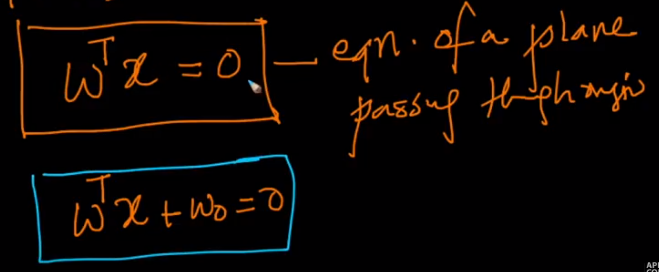 wᵀx = 0 — eqn. of a plane
passing through origin
wᵀx + w₀ = 0